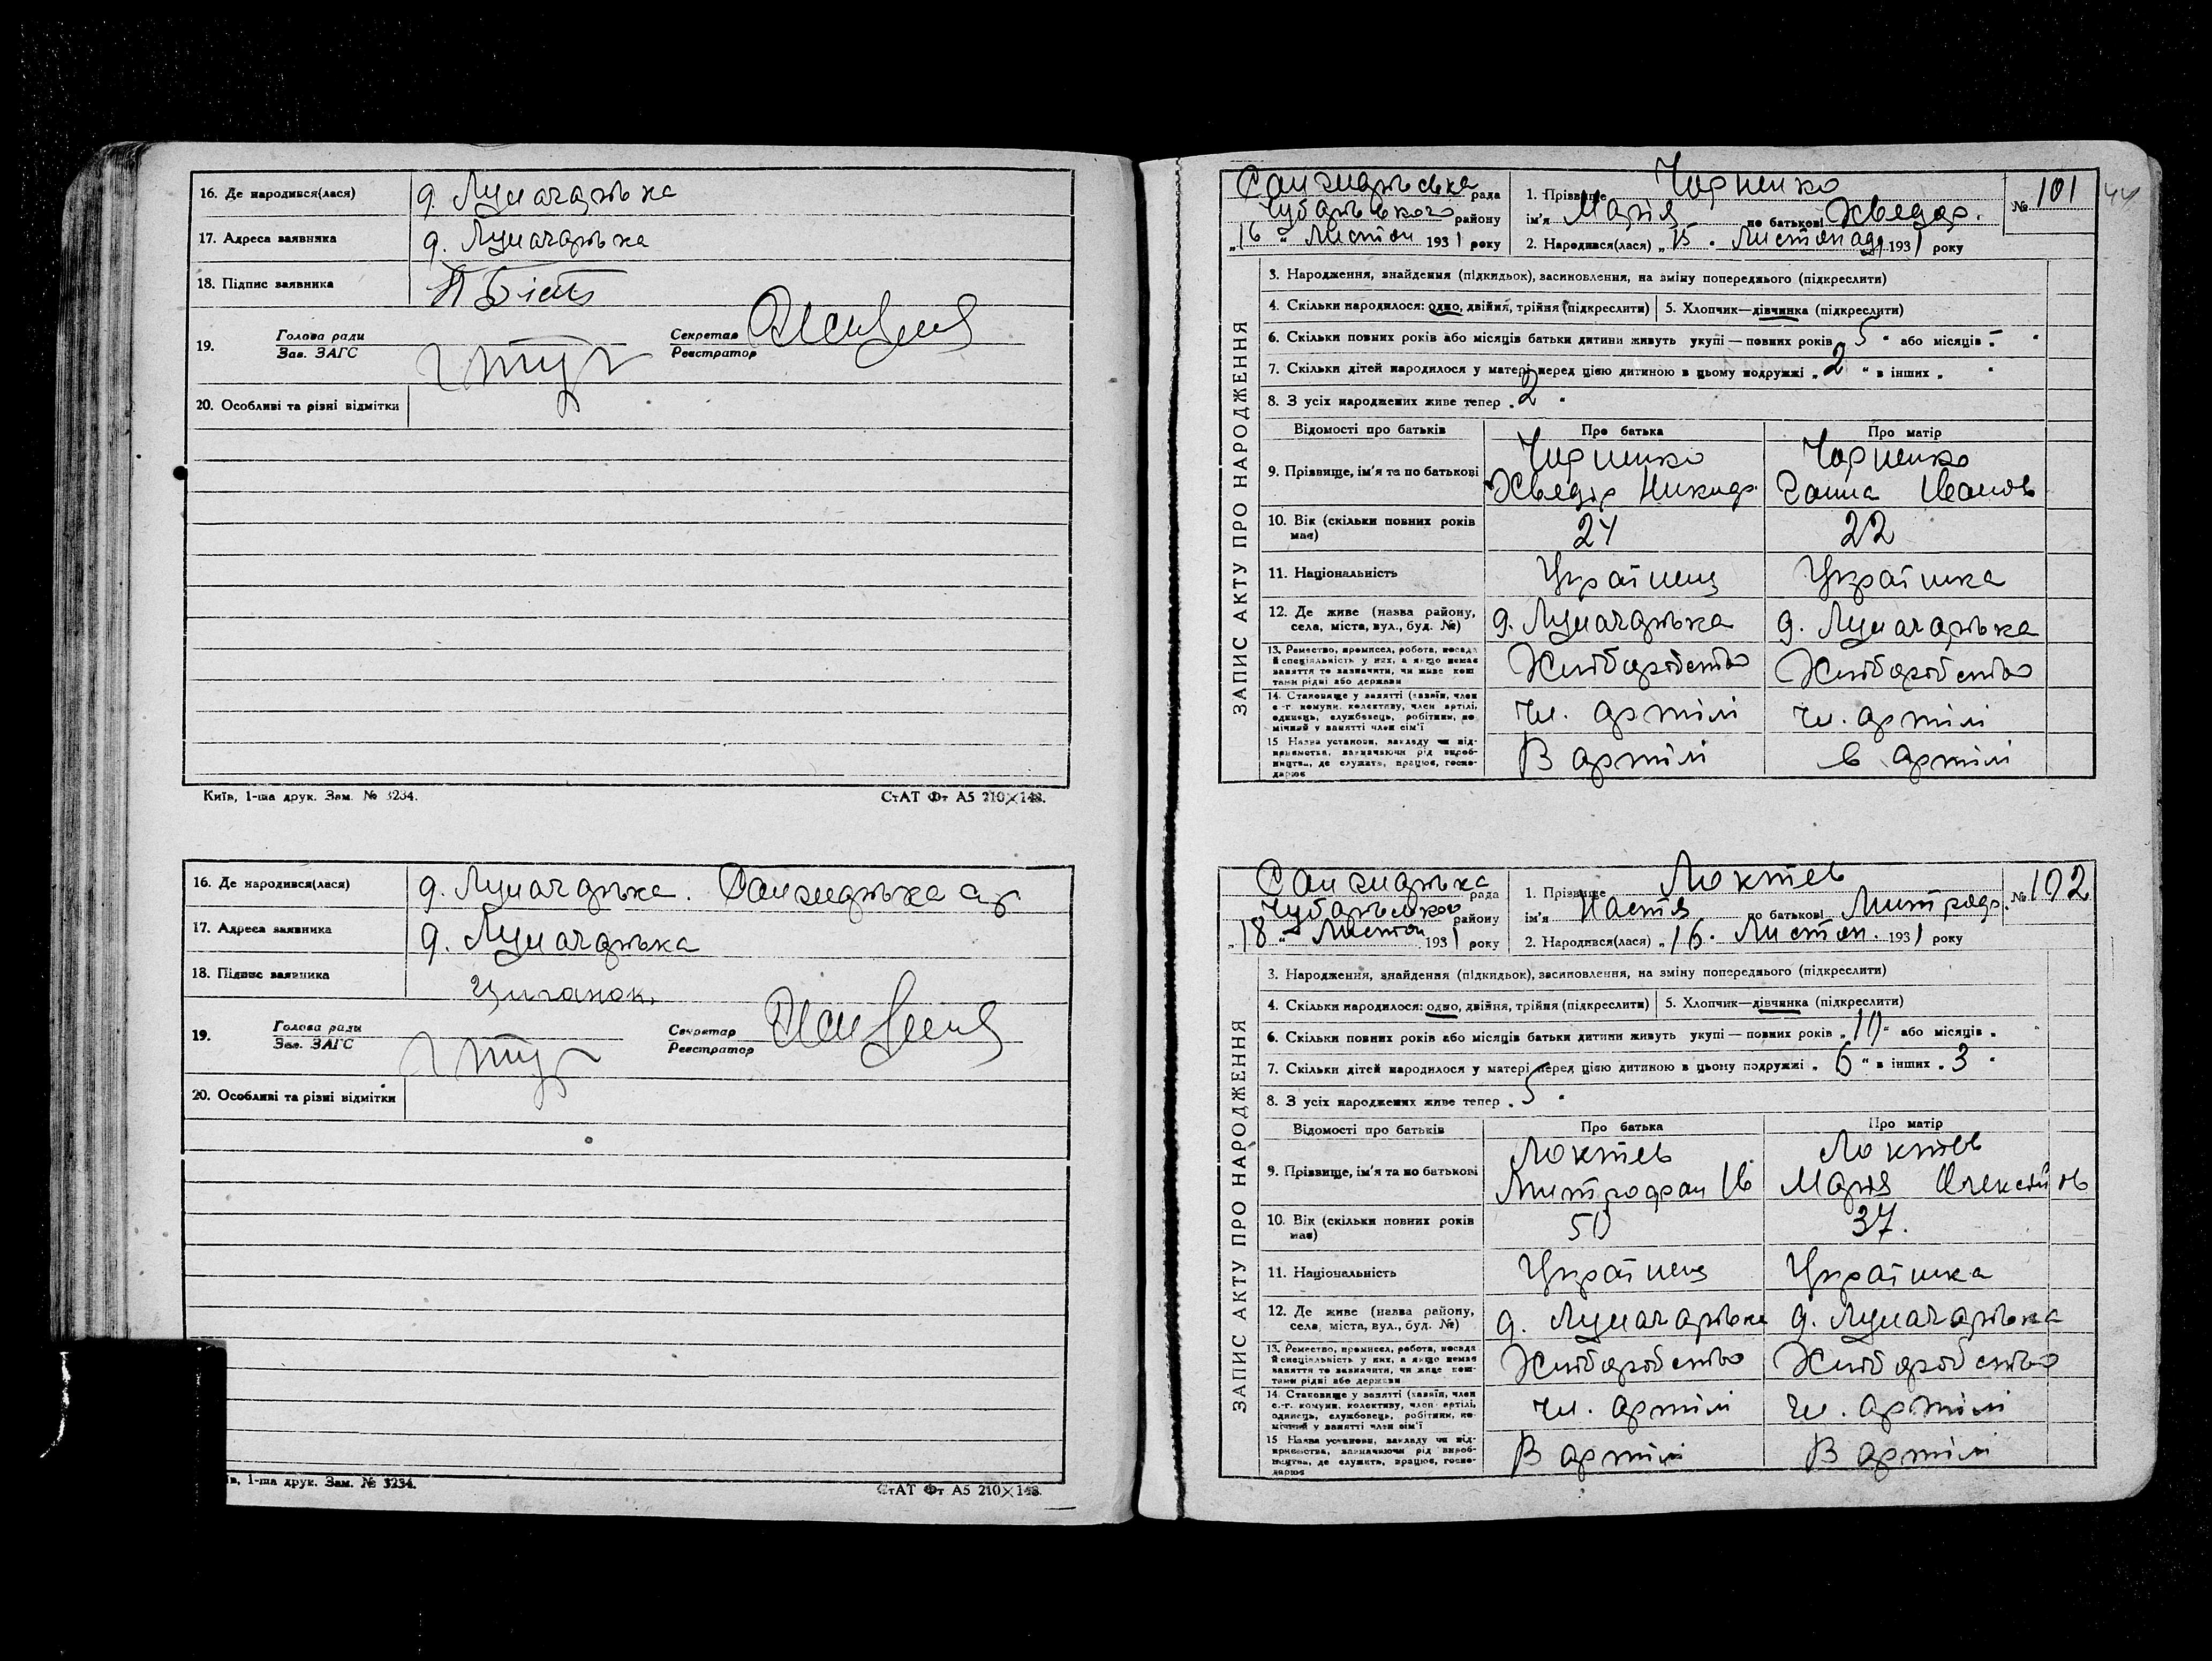 16. Де народився(лася) д. Луначарівка
17. Адреса заявника д. Луначарівка
18. Підпис заявника
19. Голова ради Зав. ЗАГС Секретар Реєстратор
20. Особливі та різні відмітки
Київ, 1-ша друк. Зам. № 3234. СтАТ Фт А5 210×148.
16. Де народився(лася) д. Луначарівка. Санжарівка с/р
17. Адреса заявника д. Луначарівка
18. Підпис заявника Циганок
19. Голова ради Зав. ЗАГС Секретар Реєстратор
20. Особливі та різні відмітки
їв, 1-ша друк. Зам. № 3234. СтАТ Фт А5 210×148.
44
ЗАПИС АКТУ ПРО НАРОДЖЕННЯ
Санжарівська рада
Чубарівського району
„16 “ Листоп 1931 року
1. Прізвище Чорненко
ім'я Марія по батькові Хведор.
№ 101
2. Народився(лася) „15 . Листопада 1931 року
3. Народження, знайдення (підкидьок), засиновлення, на зміну попереднього (підкреслити)
4. Скільки народилося: одно, двійня, трійня (підкреслити) 5. Хлопчик—дівчинка (підкреслити)
6. Скільки повних років або місяців батьки дитини живуть укупі — повних років „ 5 “ або місяців „ - “
7. Скільки дітей народилося у матері перед цією дитиною в цьому подружжі „ 2 “ в інших „ “
8. З усіх народжених живе тепер „ 2 “
Відомості про батьків Про батька Про матір
9. Прізвище, ім'я та по батькові Чорненко Хведір Никиф. Чорненко Ганна Іванов
10. Вік (скільки повних років має) 24 22
11. Національність Українец Українка
12. Де живе (назва району, села, міста, вул., буд. №) д. Луначарівка д. Луначарівка
13. Ремество, промисел, робота, посада й спеціяльність у них, а якщо немає заняття то зазначити, чи живе коштами рідні або держави Хліборобство Хліборобство
14. Становище у занятті (хазяїн, член с.-г. комуни, колективу, член артілі, одинець, службовець, робітник, помічний у занятті член сім'ї чл. артілі чл. артілі
15 Назва установи, закладу чи підприємства, зазначаючи рід виробництва, де служить, працює, господарює В артілі в артілі
ЗАПИС АКТУ ПРО НАРОДЖЕННЯ
Санжарівка рада
Чубарівського району
„18 “ Листоп 1931 року
1. Прізвище Локтев
ім'я Настя по батькові Митроф.
№ 102
2. Народився(лася) „16 . Листоп. 1931 року
3. Народження, знайдення (підкидьок), засиновлення, на зміну попереднього (підкреслити)
4. Скільки народилося: одно, двійня, трійня (підкреслити) 5. Хлопчик—дівчинка (підкреслити)
6. Скільки повних років або місяців батьки дитини живуть укупі — повних років „ 10 “ або місяців „ “
7. Скільки дітей народилося у матері перед цією дитиною в цьому подружжі „ 6 “ в інших „ 3 “
8. З усіх народжених живе тепер „ 5 “
Відомості про батьків Про батька Про матір
9. Прізвище, ім'я та по батькові Локтев Митрофан Ів Локтев Марія Олексійов
10. Вік (скільки повних років має) 50 37.
11. Національність Українец Українка
12. Де живе (назва району, села, міста, вул., буд. №) д. Луначарівка д. Луначарівка
13. Ремество, промисел, робота, посада й спеціяльність у них, а якщо немає заняття то зазначити, чи живе коштами рідні або держави Хліборобство Хліборобство
14. Становище у занятті (хазяїн, член с.-г. комуни, колективу, член артілі, одинець, службовець, робітник, помічний у занятті член сім'ї чл. артілі чл. артілі
15 Назва установи, закладу чи підприємства, зазначаючи рід виробництва, де служить, працює, господарює В артілі В артілі